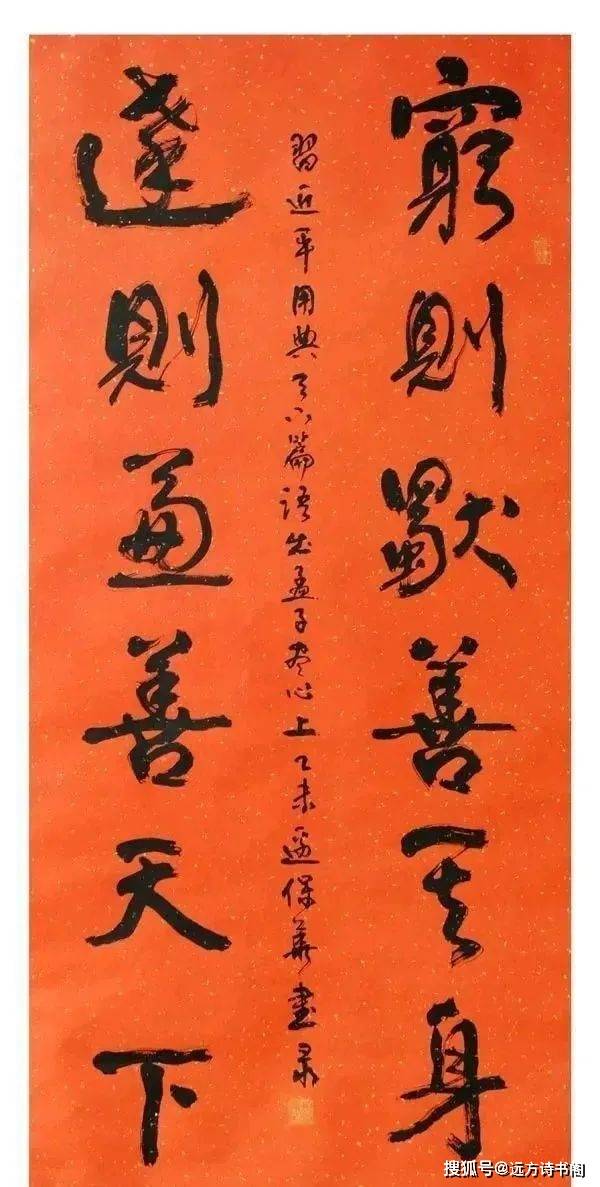 窮則獨善其身
習近平用典天下篇語出孟子盡心上乙未邊保華書录
達則兼善天下
搜狐号@远方诗书阁